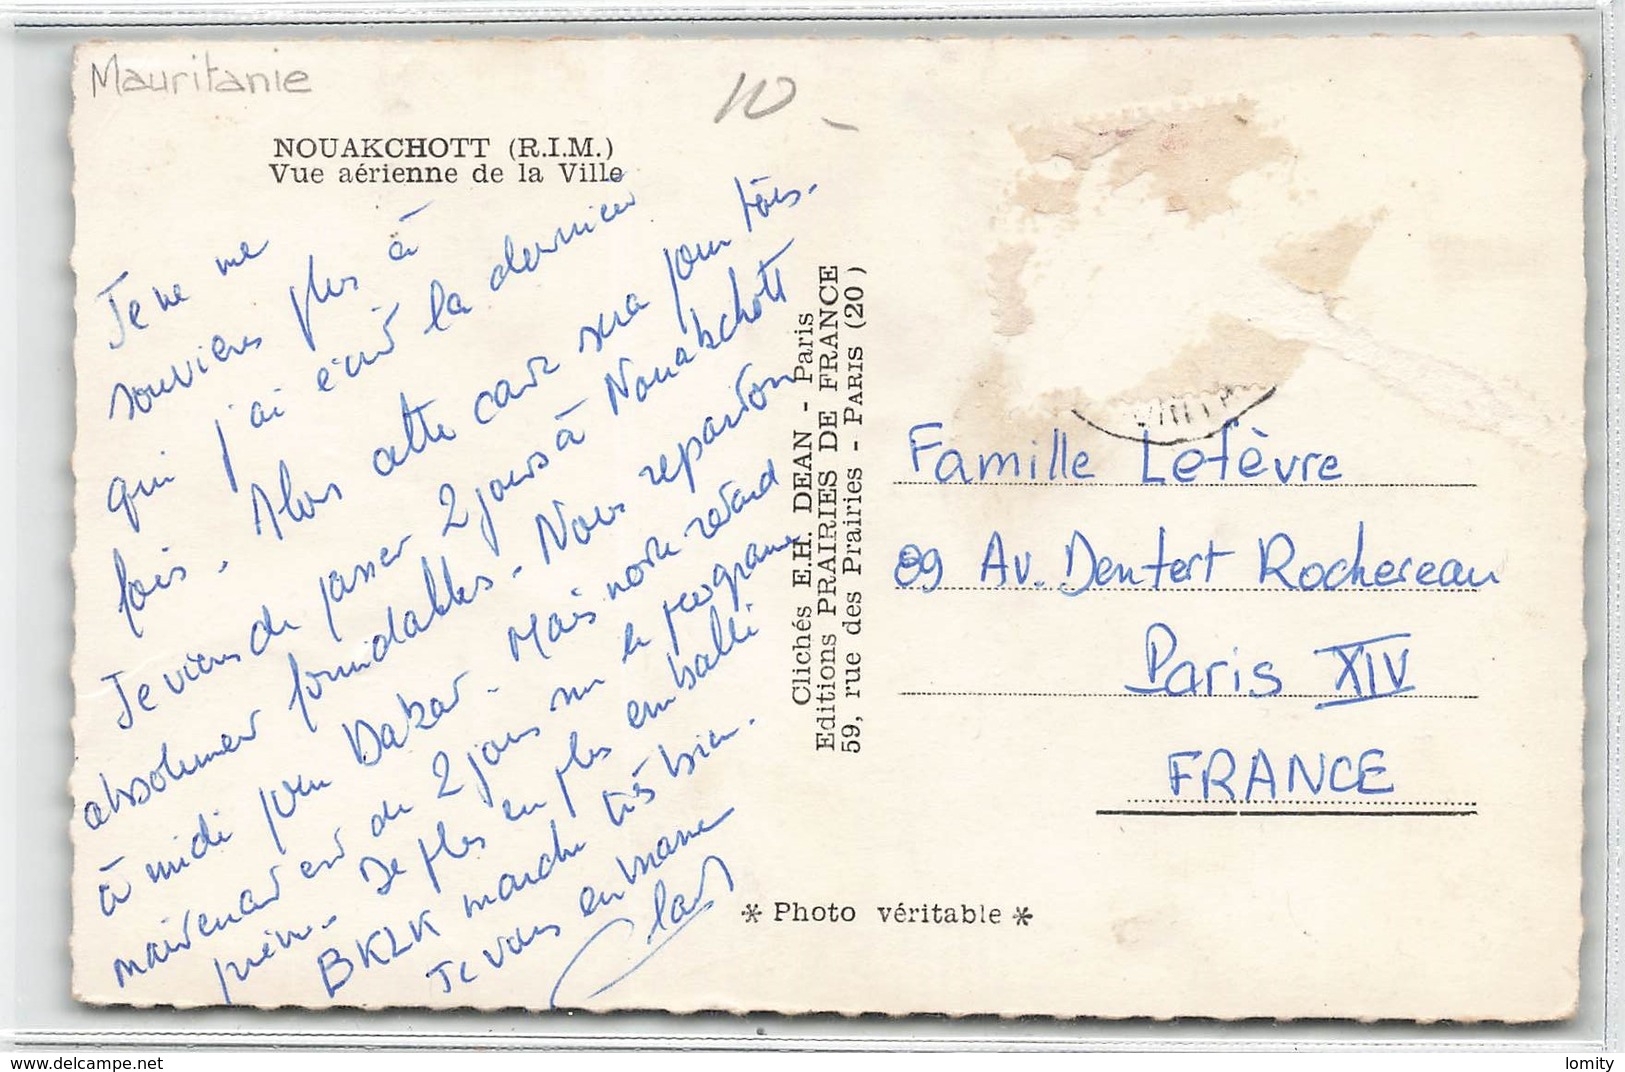 Mauritanie
10 -
NOUAKCHOTT (R.I.M.)
Vue aérienne de la Ville
Je ne me
souviens plus à
qui j'ai écrit la dernière
fois. Alors cette carte sera pour tous.
Je viens de passer 2 jours à Nouakchott
absolument formidables. Nous repartons
à midi pour Dakar. Mais notre retard
maintenant est de 2 jours sur le programme
prévu. De plus en plus emballé
BKLK marche très bien.
Je vous embrasse
Clichés E.H. DEAN - Paris
Editions PRAIRIES DE FRANCE
59, rue des Prairies - PARIS (20 )
Famille Lefèvre
89 Av. Denfert Rochereau
Paris XIV
FRANCE
* Photo véritable *
delcampe.net
lomity